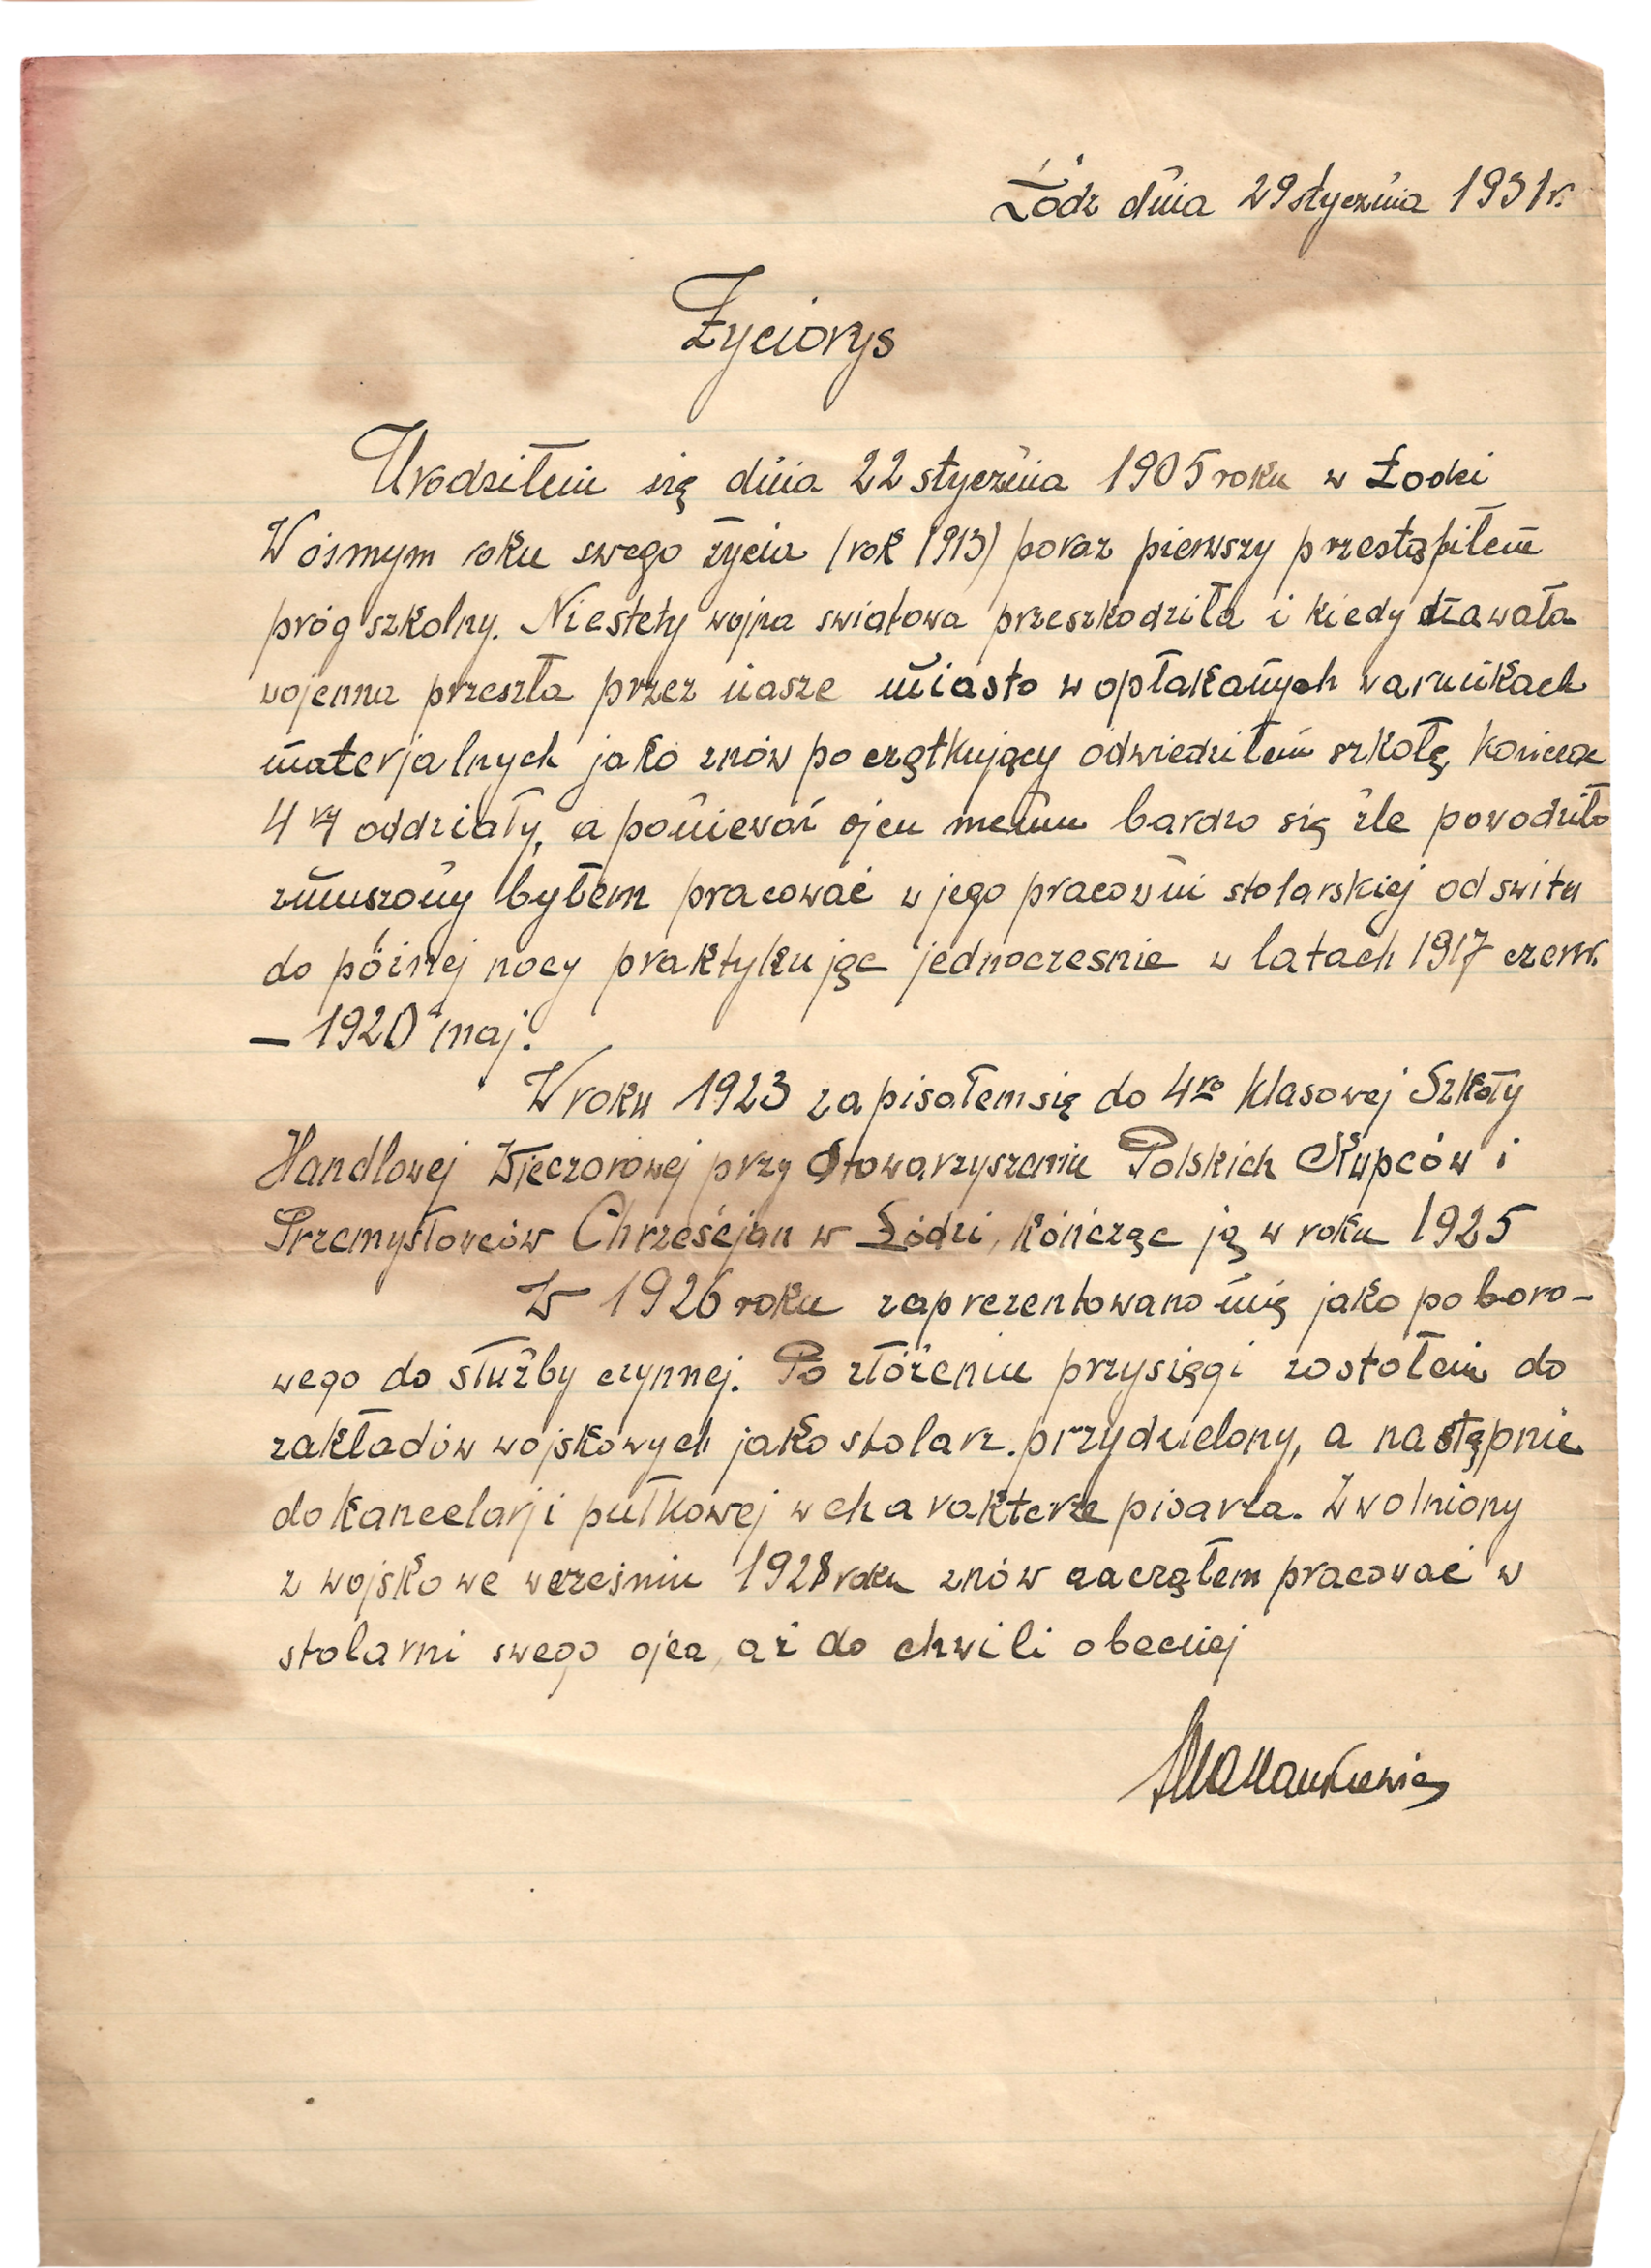 Łódź dnia 29 stycznia 1931 r.
Życiorys
Urodziłem się dnia 22 stycznia 1905 roku w Łodzi
W ósmym roku swego życia (rok 1913) poraz pierwszy przestąpiłem
próg szkolny. Niestety wojna swiatowa przeszkodziła i kiedy nawała
wojenna przeszła przez nasze miasto w opłakanych warunkach
materjalnych jako znów początkujący odwiedziłem szkołę, kończąc
4 ry oddziały, a ponieważ ojcu memu bardzo się źle powodziło
zmuszony byłem pracować w jego pracowni stolarskiej od switu
do późnej nocy praktykując jednoczesnie w latach 1917 czerw.
— 1920 maj.
W roku 1923 zapisałem się do 4ro klasowej Szkoły
Handlowej Wieczorowej przy Stowarzyszeniu Polskich Kupców i
Przemysłowców Chrześcjan w Łodzi, kończąc ją w roku 1925
W 1926 roku zaprezentowano mię jako poboro-
wego do służby czynnej. Po złóżeniu przysięgi zostołem do
zakładów wojskowych jako stolarz przydzielony, a następnie
do kancelarji pułkowej w charakterze pisarza. Zwolniony
z wojsko we wrześniu 1928 roku znów zacząłem pracować w
stolarni swego ojca, aż do chwili obecnej